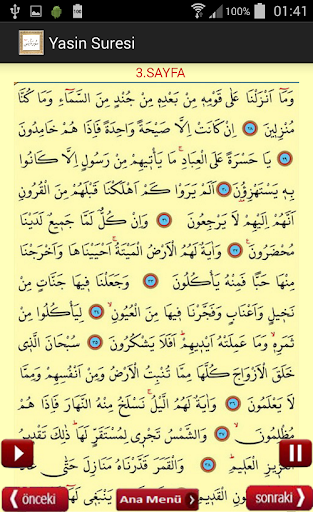 100% 01:41
Yasin Suresi
3.SAYFA
وَمَٓا اَنْزَلْنَا عَلٰى قَوْمِه۪ مِنْ بَعْدِه۪ مِنْ جُنْدٍ مِنَ السَّمَٓاءِ وَمَا كُنَّا
مُنْزِل۪ينَ ﴿٢٨﴾ اِنْ كَانَتْ اِلَّا صَيْحَةً وَاحِدَةً فَاِذَا هُمْ خَامِدُونَ
﴿٢٩﴾ يَا حَسْرَةً عَلَى الْعِبَادِۚ مَا يَأْت۪يهِمْ مِنْ رَسُولٍ اِلَّا كَانُوا
بِه۪ يَسْتَهْزِؤُ۫نَ ﴿٣٠﴾ اَلَمْ يَرَوْا كَمْ اَهْلَكْنَا قَبْلَهُمْ مِنَ الْقُرُونِ
اَنَّهُمْ اِلَيْهِمْ لَا يَرْجِعُونَ ﴿٣١﴾ وَاِنْ كُلٌّ لَمَّا جَم۪يعٌ لَدَيْنَا
مُحْضَرُونَ ﴿٣٢﴾ وَاٰيَةٌ لَهُمُ الْاَرْضُ الْمَيْتَةُۚ اَحْيَيْنَاهَا وَاَخْرَجْنَا
مِنْهَا حَبًّا فَمِنْهُ يَأْكُلُونَ ﴿٣٣﴾ وَجَعَلْنَا ف۪يهَا جَنَّاتٍ مِنْ
نَخ۪يلٍ وَاَعْنَابٍ وَفَجَّرْنَا ف۪يهَا مِنَ الْعُيُونِۙ ﴿٣٤﴾ لِيَأْكُلُوا مِنْ
ثَمَرِه۪ۙ وَمَا عَمِلَتْهُ اَيْد۪يهِمْۜ اَفَلَا يَشْكُرُونَ ﴿٣٥﴾ سُبْحَانَ الَّذ۪ى
خَلَقَ الْاَزْوَاجَ كُلَّهَا مِمَّا تُنْبِتُ الْاَرْضُ وَمِنْ اَنْفُسِهِمْ وَمِمَّا
لَا يَعْلَمُونَ ﴿٣٦﴾ وَاٰيَةٌ لَهُمُ الَّيْلُۚ نَسْلَخُ مِنْهُ النَّهَارَ فَاِذَا هُمْ
مُظْلِمُونَۙ ﴿٣٧﴾ وَالشَّمْسُ تَجْر۪ى لِمُسْتَقَرٍّ لَهَاۜ ذٰلِكَ تَقْد۪يرُ
الْعَز۪يزِ الْعَل۪يمِۜ ﴿٣٨﴾ وَالْقَمَرَ قَدَّرْنَاهُ مَنَازِلَ حَتّٰى عَادَ
يَنْبَغ۪ى لَهَٓا
önceki Ana Menü sonraki